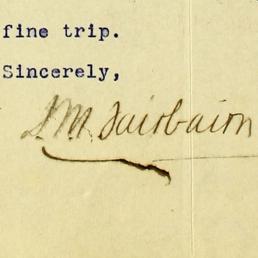 fine trip.
Sincerely,
J.M. Fairbairn